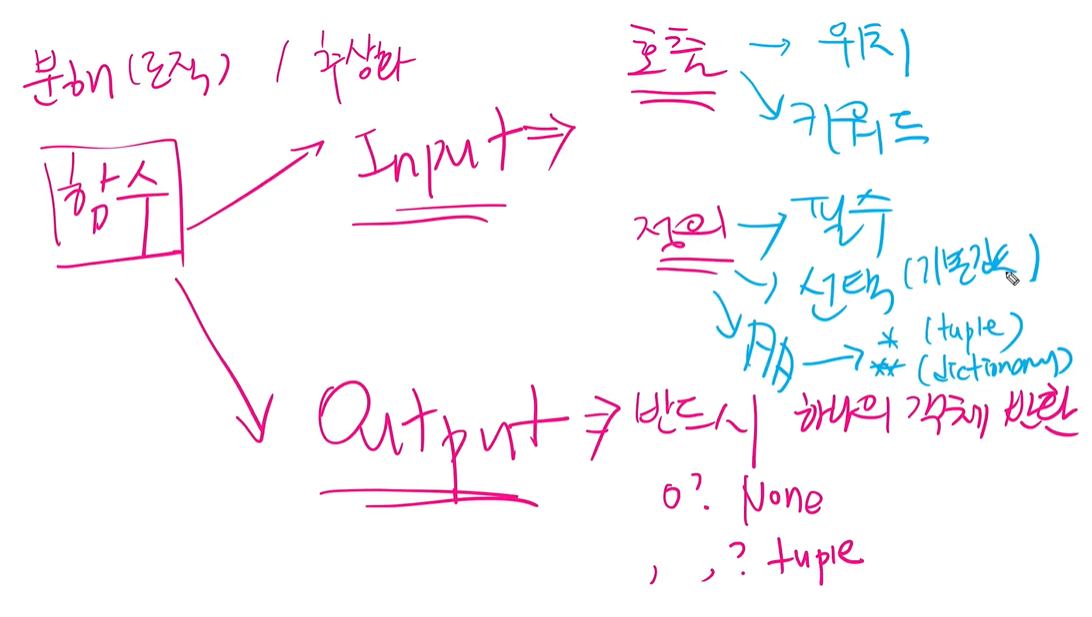 분해(로직) / 추상화
함수
Input ⇒
호출 → 위치
키워드
정의 → 필수
→ 선택 (기본값)
→ * (tuple)
** (dictionary)
Output ⇒ 반드시 하나의 객체 반환
0? None
, , ? tuple